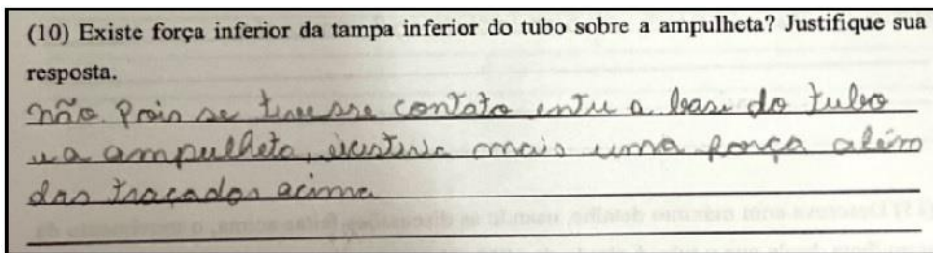 (10) Existe força inferior da tampa inferior do tubo sobre a ampulheta? Justifique sua
resposta.
não. Pois se tivesse contato entre a base do tubo
e a ampulheta, existiria mais uma força além
das traçadas acima.